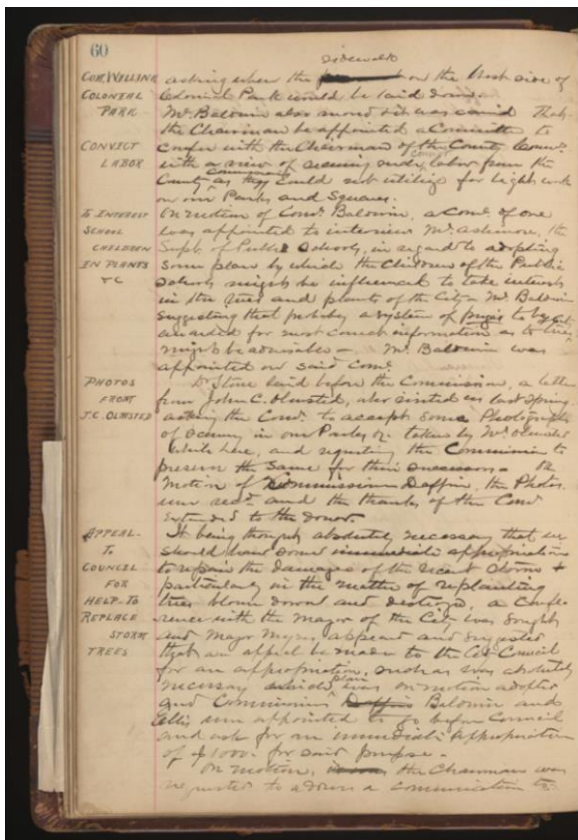 60
sidewalk
COM. WELLINK asking when the on the West side of
COLONIAL Colonial Park would be laid down.
PARK Mr. Baldwin also moved & it was carried That
the Chairman be appointed a Committee to
CONVICT confer with the Chairman of the County Comrs.
LABOR with a view of securing such convict labor from the
County as they commissioners could not utilize for light work
on our Parks and Squares.
TO INTEREST On motion of Comr. Baldwin, a Com. of one
SCHOOL was appointed to interview Mr. Ashmore, the
CHILDREN Supt. of Public Schools, in regard to adopting
IN PLANTS some plan by which the Children of the Public
&C Schools might be influenced to take interest
in the trees and plants of the City. Mr. Baldwin
suggesting that probably a system of prizes to be
awarded for most correct information as to trees
might be advisable — Mr. Baldwin was
appointed on said Com.
PHOTOS Dr. Stone laid before the Commission, a letter
FROM from John C. Olmsted, who visited us last Spring.
J.C. OLMSTED asking the Com. to accept some Photographs
of Scenery in our Parks &c. taken by Mr. Olmsted
while here, and requesting the Commission to
preserve the same for their successors — On
motion of Commissioner Daffin, the Photos.
were recd. and the thanks of the Com.
extended to the donor.
APPEAL- It being thought absolutely necessary that we
TO should have some immediate appropriation
COUNCIL to repair the damages of the recent Storm &
FOR particularly in the matter of replanting
HELP-TO trees blown down and destroyed, a Confe-
REPLACE rence with the Mayor of the City was sought
STORM and Mayor Myers appeared and suggested
TREES that an appeal be made to the City Council
for an appropriation, such as was absolutely
necessary which plan was on motion adopted
and Commissioners Baldwin and
were appointed to go before Council
and ask for an immediate appropriation
of $1000. for said purpose.
On motion, the Chairman was
requested to address a communication to